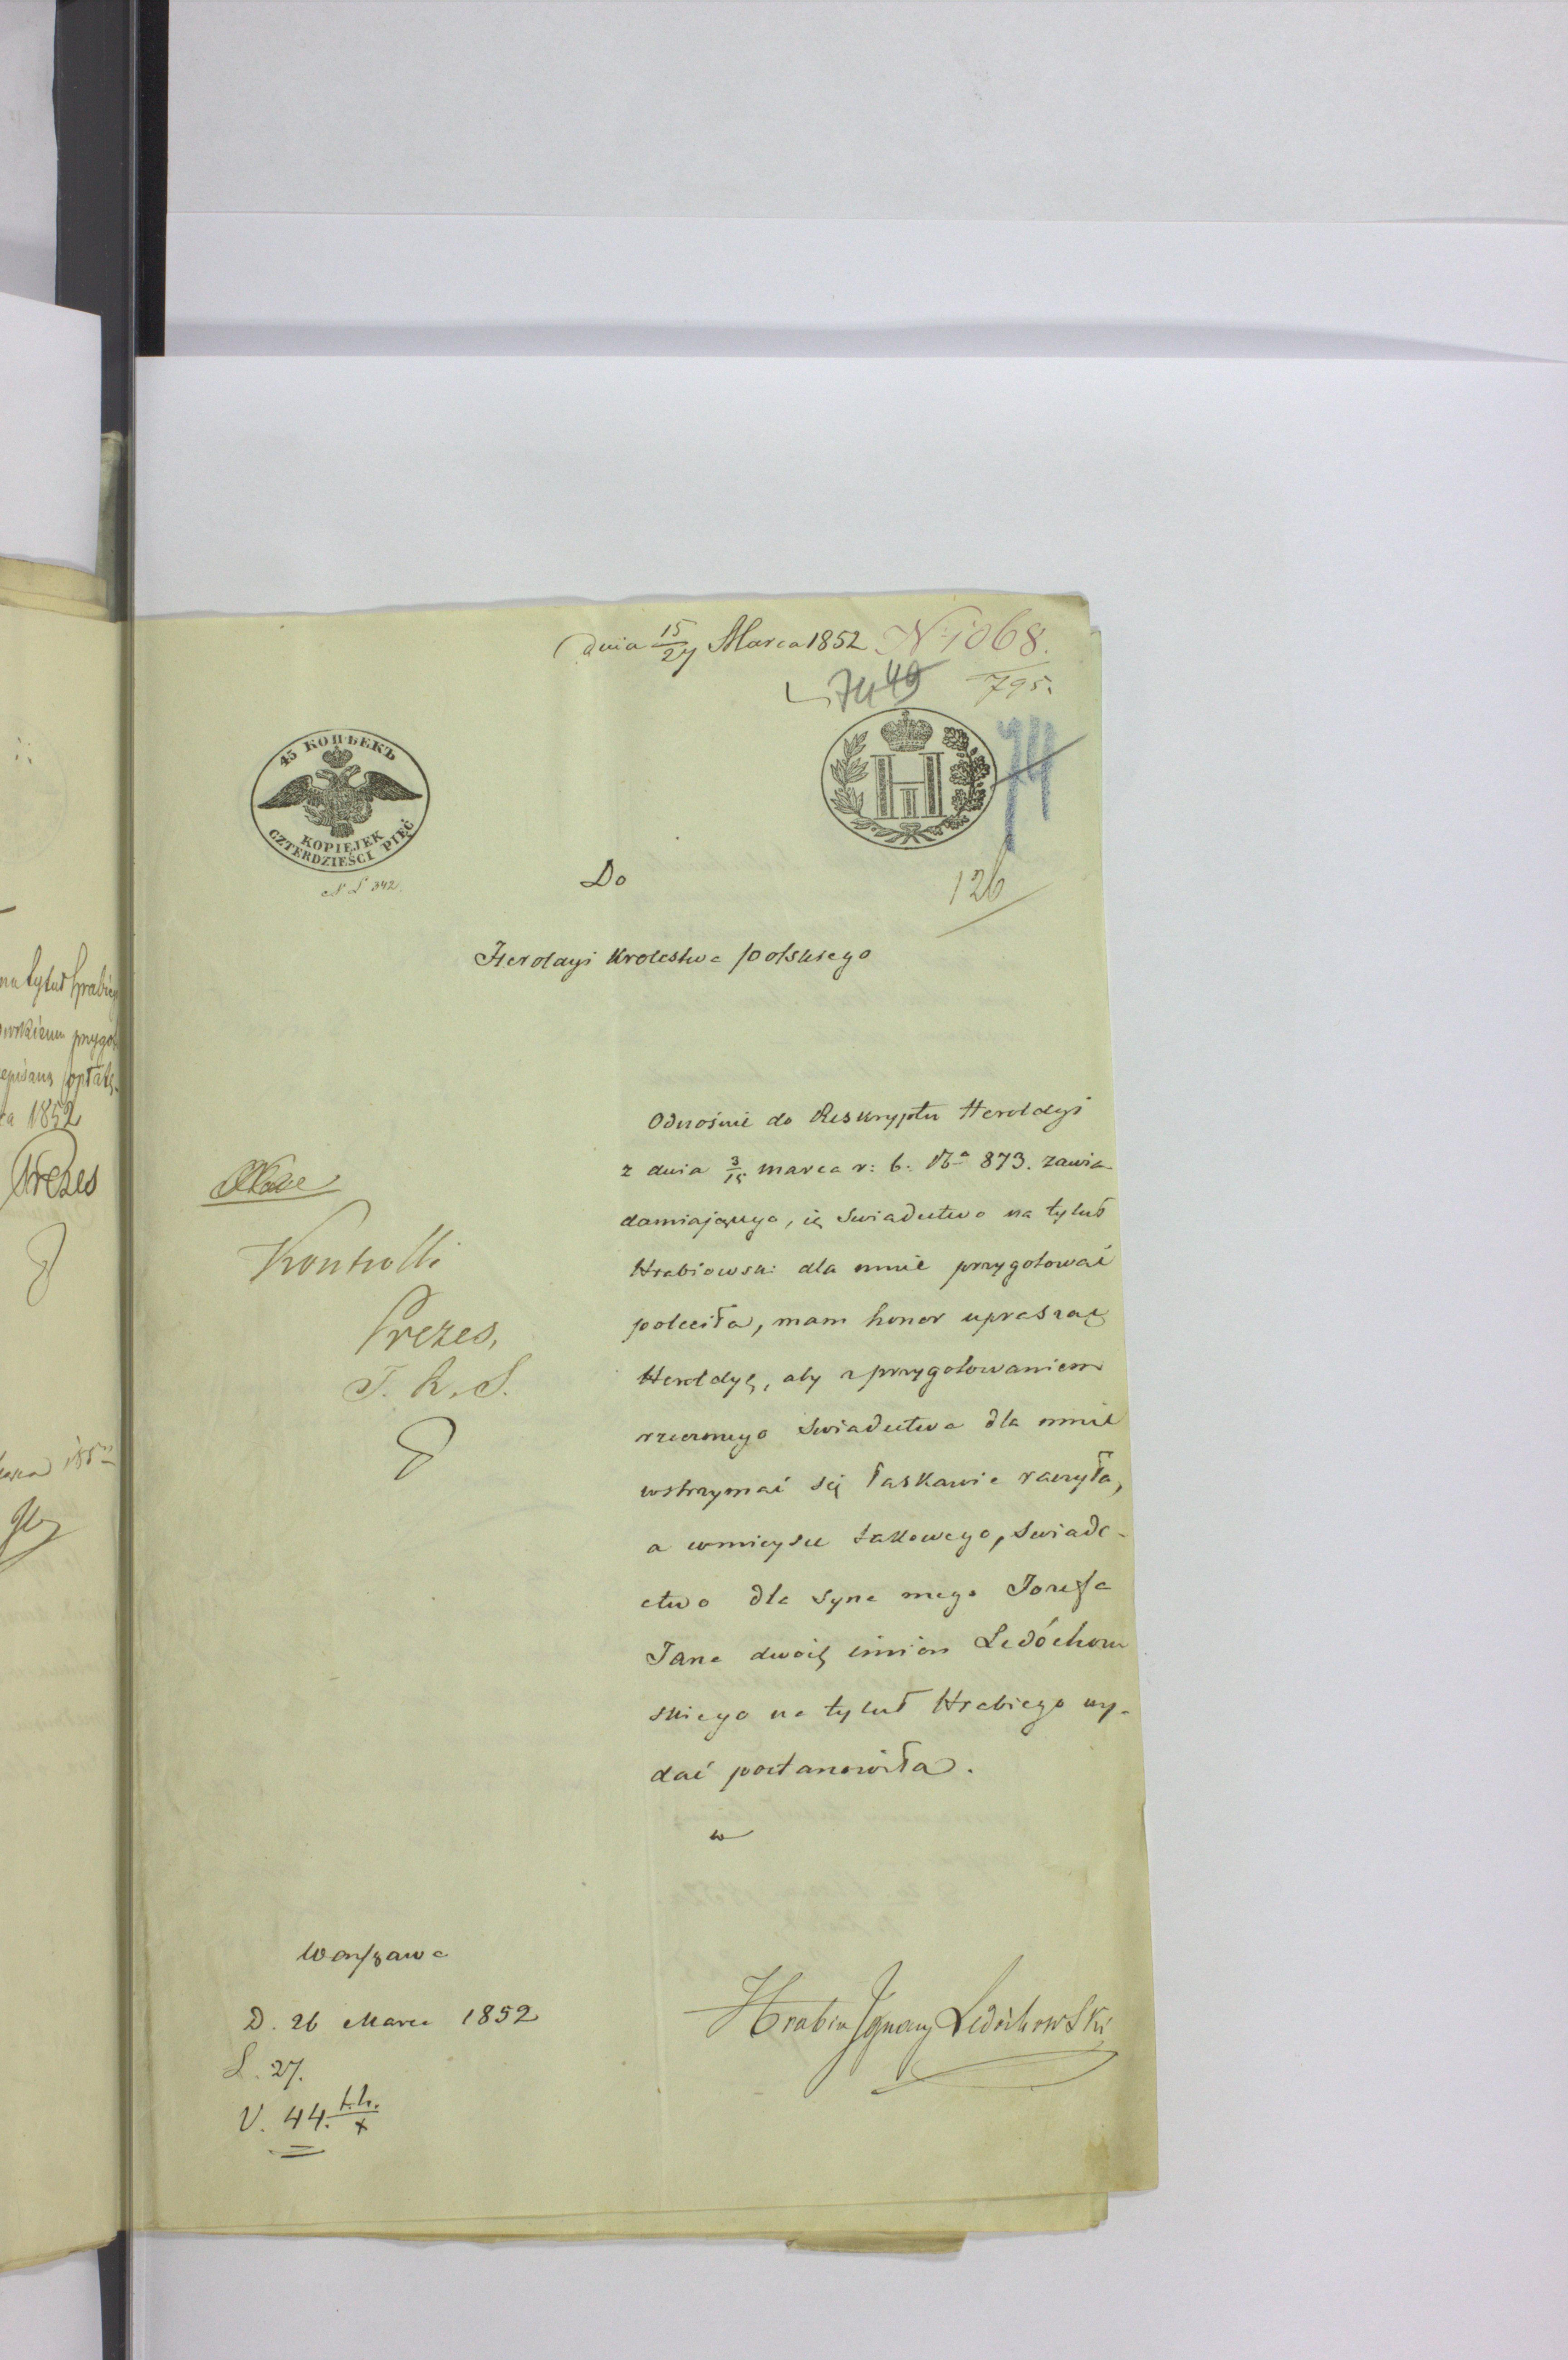 dnia 15/27 Marca 1852 N 1068.
7449 795.
74
45 КОПѢЕКЪ
KOPIEJEK
CZTERDZIEŚCI PIĘĆ
N L 342.
126
Do
Heroldyi Krolestwa polskiego
Odnośnie do Reskryptu Heroldyi
z dnia 3/15 marca r: b: No 873. zawia-
damiającego, iż swiadectwo na tytuł
Hrabiowski dla mnie przygotować
poleciła, mam honor upraszać
Heroldyę, aby z przygotowaniem
rzeczonego swiadectwa dla mnie
wstrzymać się łaskawie raczyła,
a wmieysce takowego, swiade-
ctwo dla syna mego Jozefa
Jana dwoig imion Ledóchow
skiego na tytuł Hrabiego wy-
dać postanowiła.
Kontrolli
Prezes,
T. R. S.
Warszawa
D. 26 Marca 1852
L. 27.
V. 44.
Hrabia Ignacy Ledóchowski
na tytuł Hrabieg
owskiemu przygot
episaną opłatę.
ca 1852
Prezes